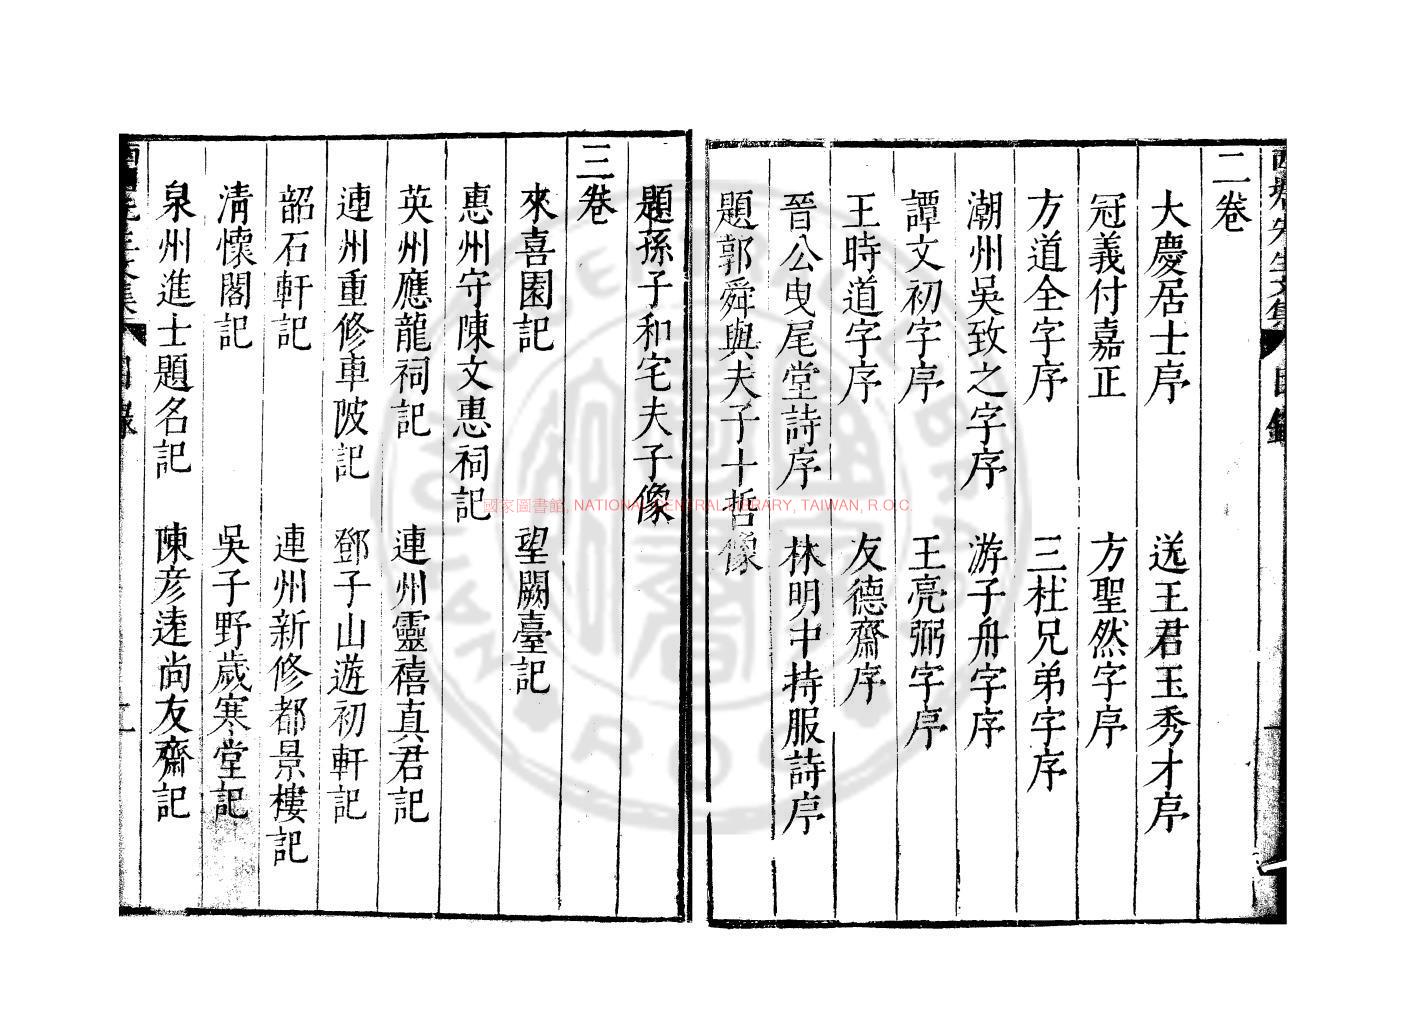 西塘先生文集 目錄
二卷
大慶居士序 送王君玉秀才序
冠義付嘉正 方聖然字序
方道全字序 三杜兄弟字序
潮州吳致之字序 游子舟字序
譚文初字序 王亮弼字序
王時道字序 友德齋序
晉公曳尾堂詩序 林明中持服詩序
題郭舜與夫子十哲像
題孫子和宅夫子像
三卷
來喜園記 望闕臺記
惠州守陳文惠祠記
英州應龍祠記 連州靈禧真君記
連州重修車陂記 鄧子山遊初軒記
韶石軒記 連州新修都景樓記
清懷閣記 吳子野歲寒堂記
泉州進士題名記 陳彥遠尚友齋記
西塘先生文集 目錄 二
國家圖書館, NATIONAL CENTRAL LIBRARY, TAIWAN, R.O.C.